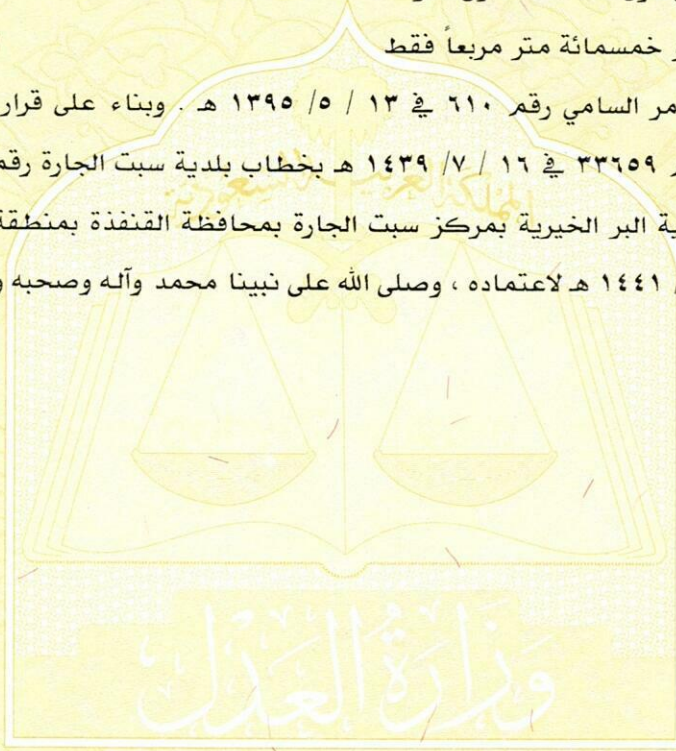 خمسمائة متر مربعاً فقط
مر السامي رقم ٦١٠ في ١٣ / ٥/ ١٣٩٥ هـ . وبناء على قرار
٣٣٦٥٩ في ١٦ / ٧/ ١٤٣٩ هـ بخطاب بلدية سبت الجارة رقم
ية البر الخيرية بمركز سبت الجارة بمحافظة القنفذة بمنطقة
١٤٤١ هـ لاعتماده ، وصلى الله على نبينا محمد وآله وصحبه و
المملكة العربية السعودية
وزارة العدل